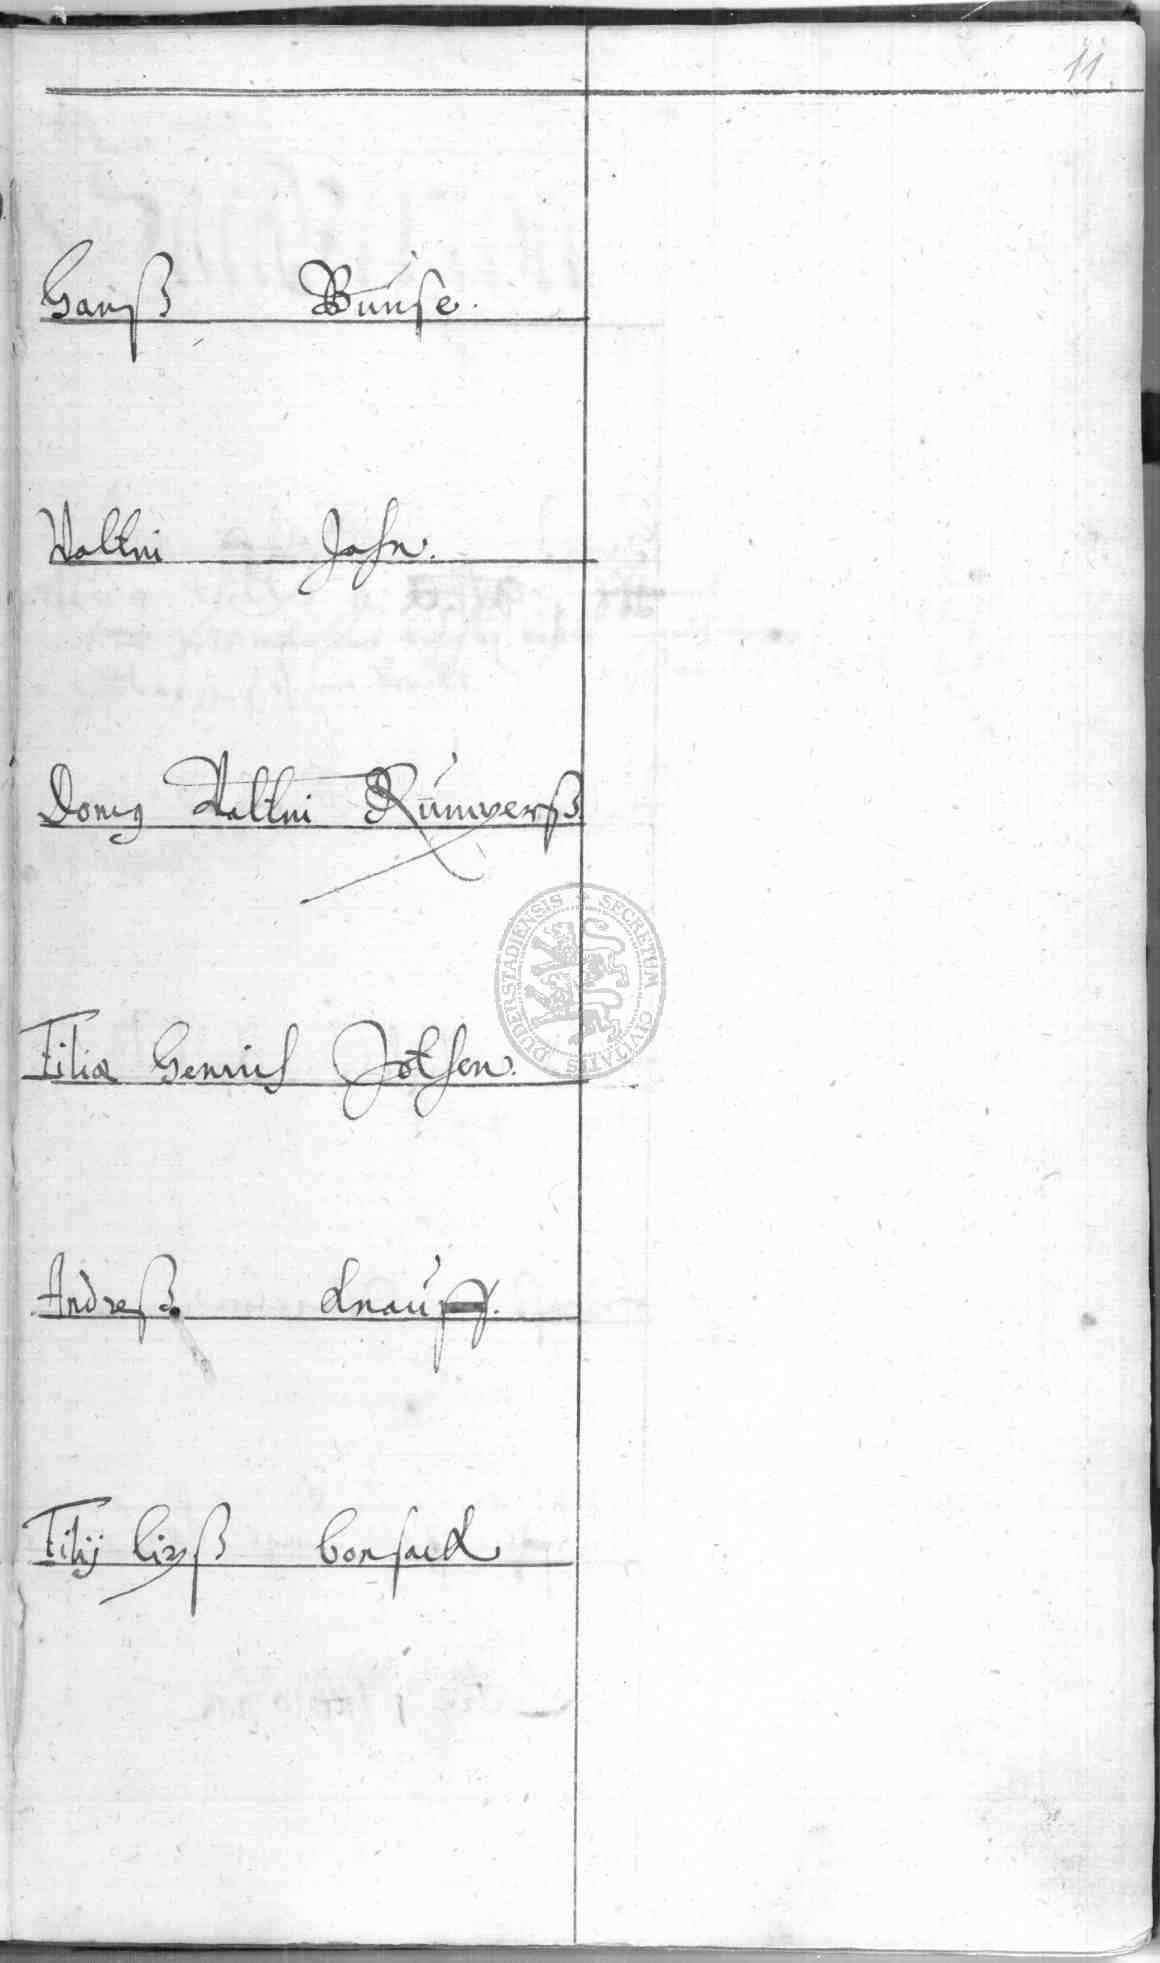 11
Hanß Bunse.
Valtin Jahn.
Domg Valtin Rümperß
Filia Henrich Jothen.
Andreß Knauff.
Filij Cirß Consack
SECRETUM CIVITATIS DUDERSTADIENSIS